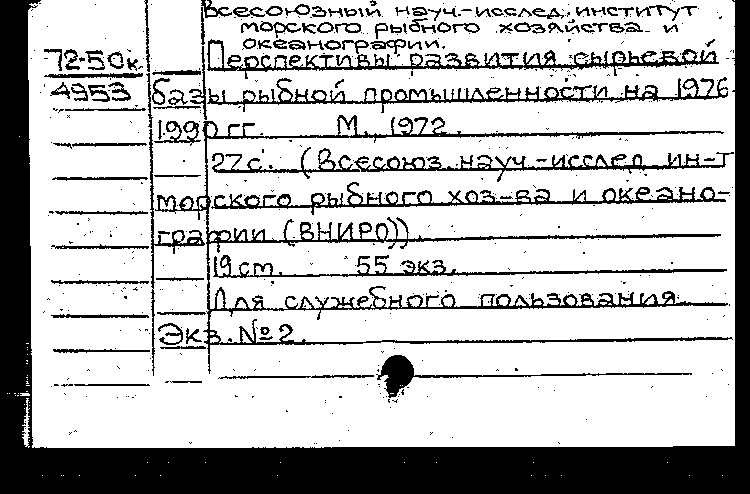 Всесоюзный науч.-исслед. институт
морского рыбного хозяйства и
океанографии.
72-50к Перспективы развития сырьевой
4953 базы рыбной промышленности на 1976
1990 гг. М., 1972.
27с. (Всесоюз. науч.-исслед. ин-т
морского рыбного хоз-ва и океано-
графии (ВНИРО)).
19 см. 55 экз.
Для служебного пользования
Экз. №2.